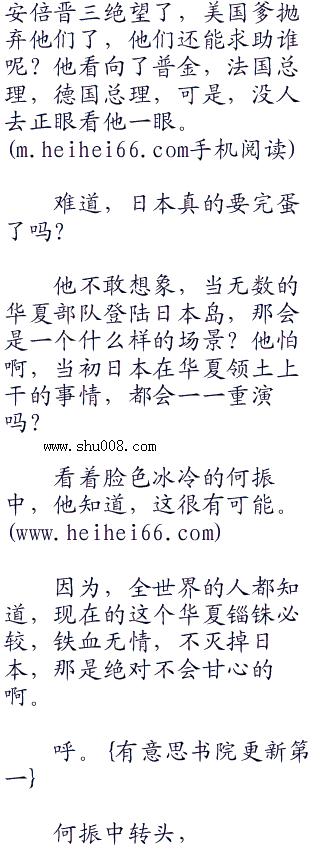 安倍晋三绝望了，美国爹抛
弃他们了，他们还能求助谁
呢？他看向了普金，法国总
理，德国总理，可是，没人
去正眼看他一眼。
(m.heihei66.com手机阅读)
难道，日本真的要完蛋
了吗？
他不敢想象，当无数的
华夏部队登陆日本岛，那会
是一个什么样的场景？他怕
啊，当初日本在华夏领土上
干的事情，都会一一重演
吗？
www.shu008.com
看着脸色冰冷的何振
中，他知道，这很有可能。
(www.heihei66.com)
因为，全世界的人都知
道，现在的这个华夏锱铢必
较，铁血无情，不灭掉日
本，那是绝对不会甘心的
啊。
呼。{有意思书院更新第
一}
何振中转头，